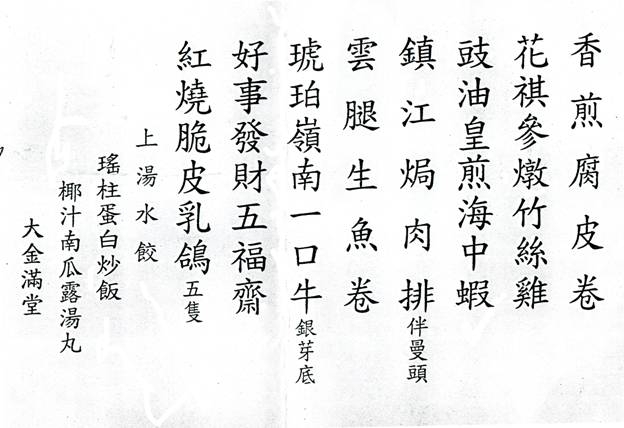 香煎腐皮卷
花祺參燉竹絲雞
豉油皇煎海中蝦
鎮江焗肉排伴曼頭
雲腿生魚卷
琥珀嶺南一口牛銀芽底
好事發財五福齋
紅燒脆皮乳鴿五隻
上湯水餃
瑤柱蛋白炒飯
椰汁南瓜露湯丸
大金滿堂